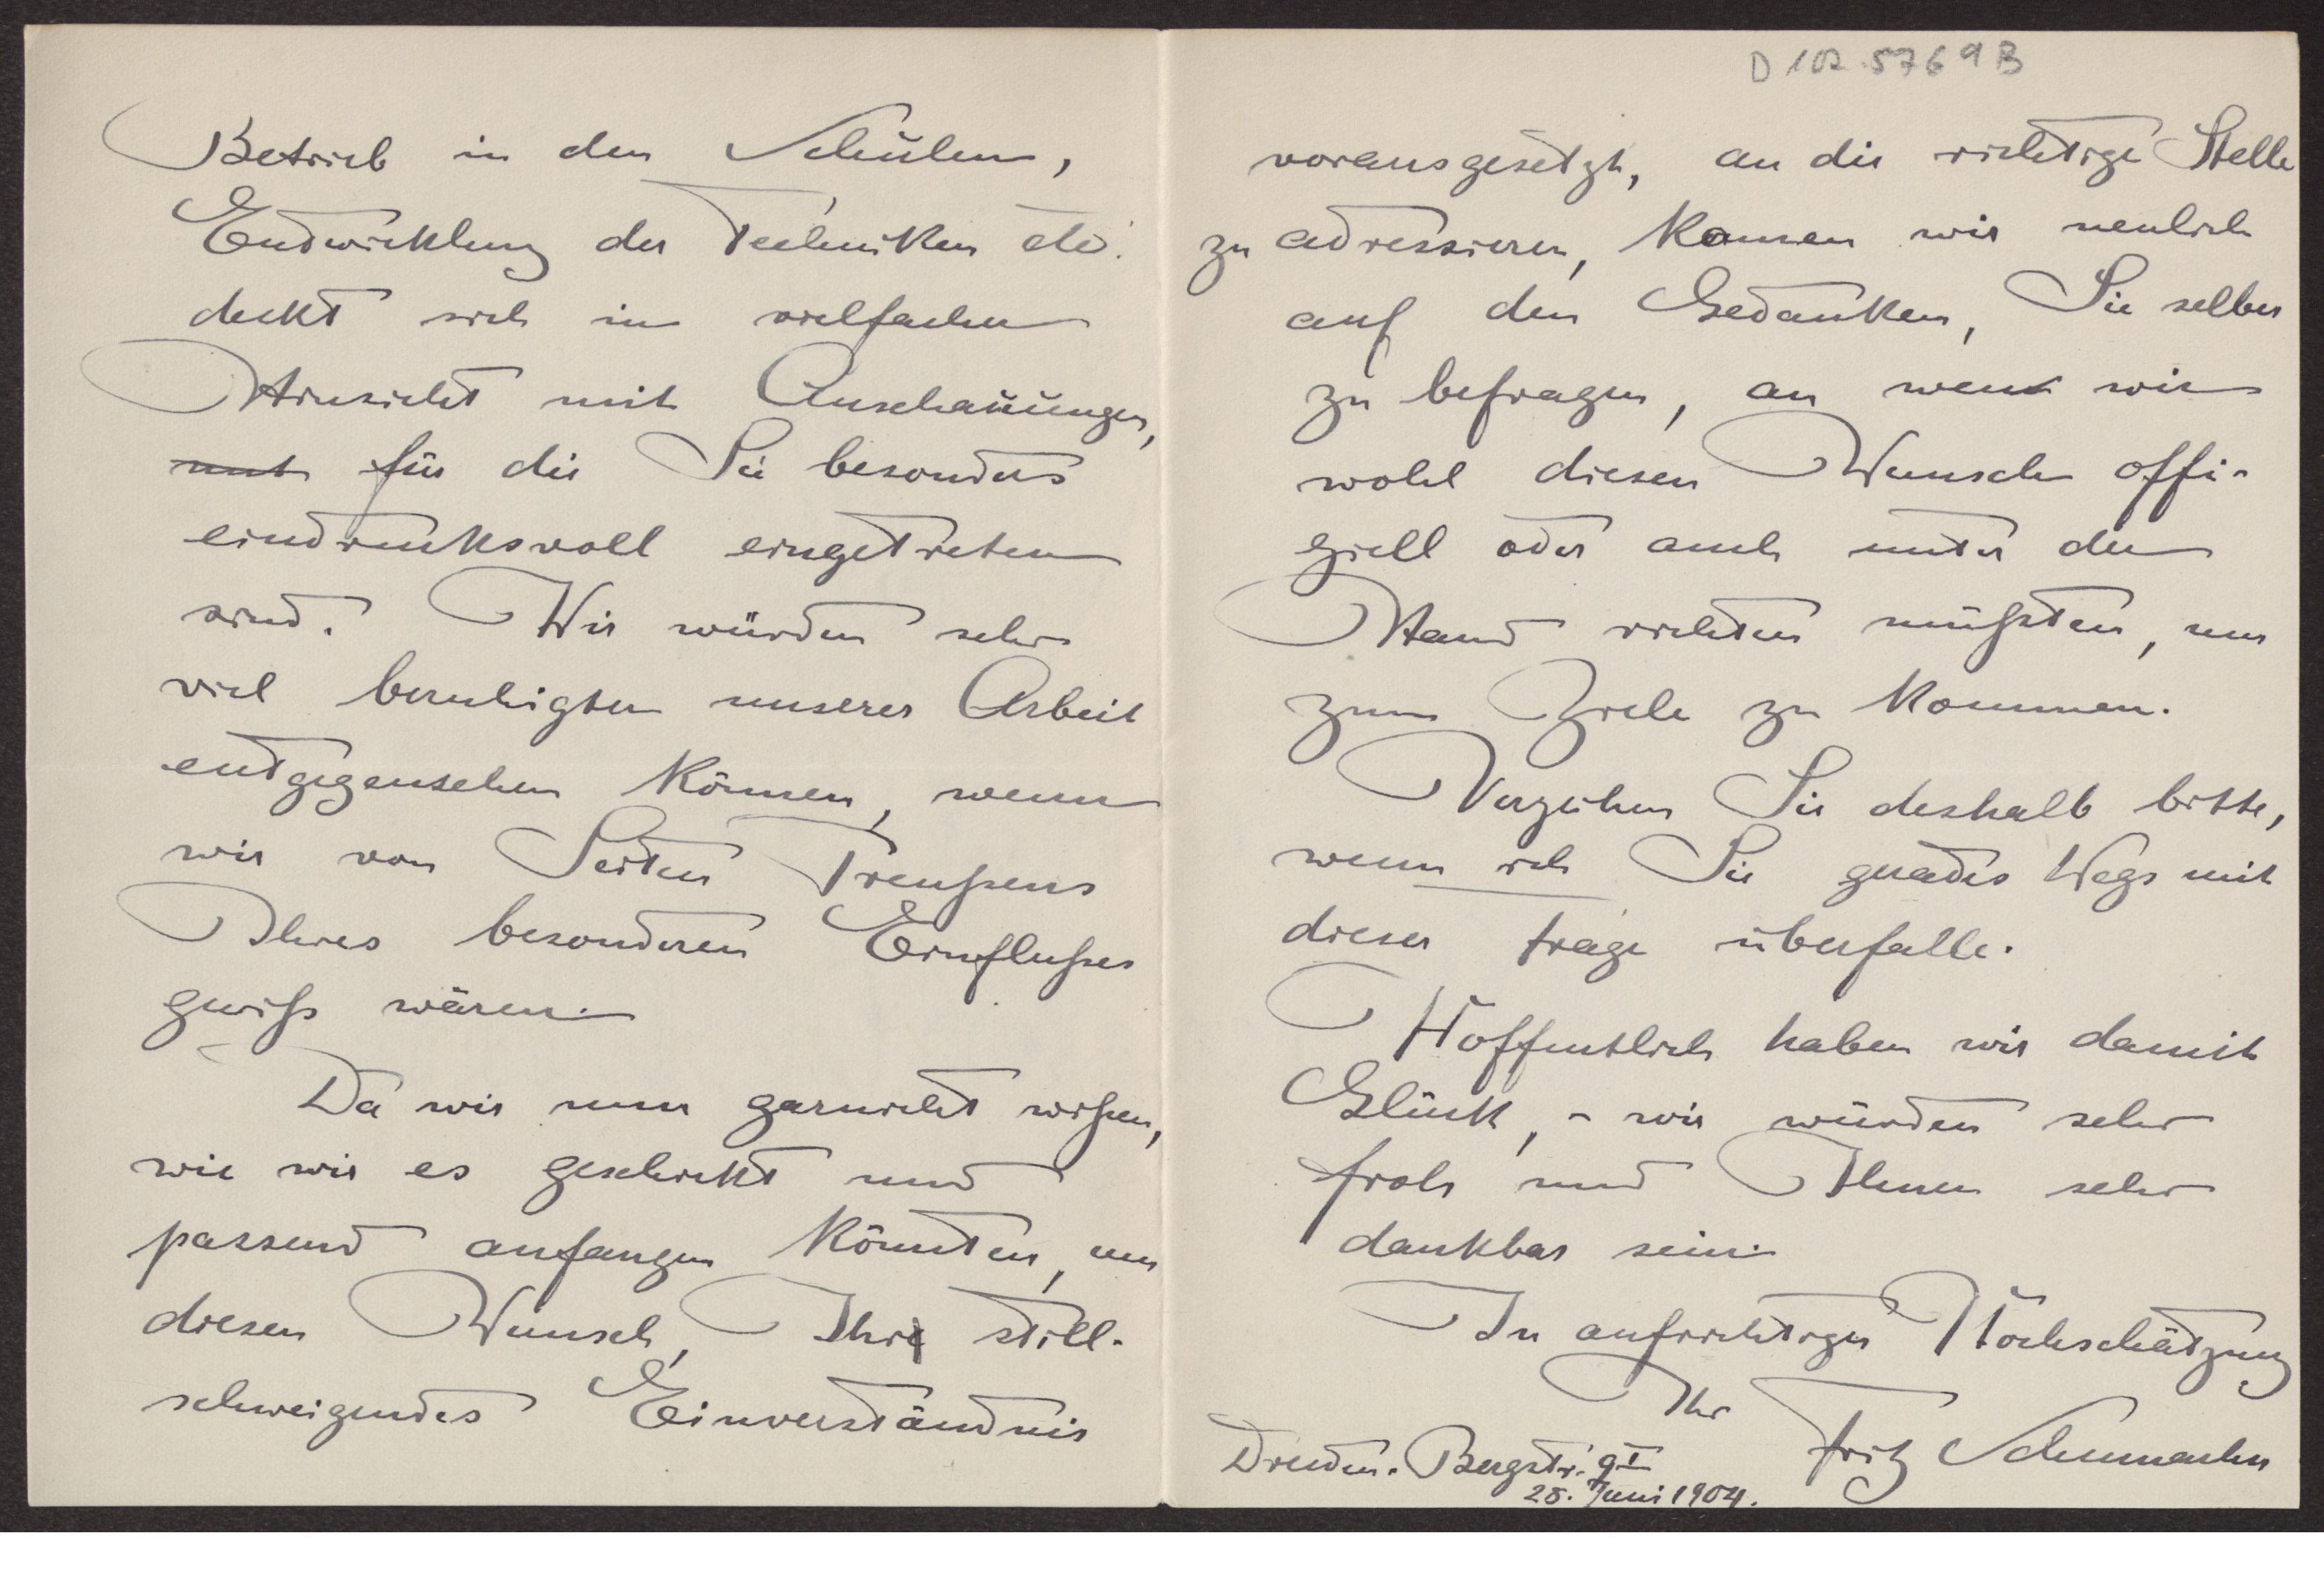 Betrieb in den Schulen,
Entwicklung der Techniken etc.
deckt sich in vielfacher
Hinsicht mit Anschauungen,
mit für die Sie besonders
eindrucksvoll eingetreten
sind. Wir würden sehr
viel beruhigter unserer Arbeit
entgegensehen können, wenn
wir von Seiten Preußens
Ihres besonderen Einflußes
gewiß wären.
Da wir nun garnicht wißen,
wie wir es geschickt und
passend anfangen könnten, um
diesen Wunsch, Ihr still-
schweigendes Einverständnis
D 102.5769 B
vorausgesetzt, an die richtige Stelle
zu adressieren, kamen wir neulich
auf den Gedanken, Sie selber
zu befragen, an wen wir
wohl diesen Wunsch offi-
ziell oder auch unter der
Hand richten müßten, um
zum Ziele zu kommen.
Verzeihen Sie deshalb bitte,
wenn ich Sie grades Wegs mit
dieser Frage überfalle.
Hoffentlich haben wir damit
Glück, - wir würden sehr
froh und Ihnen sehr
dankbar sein.
In aufrichtiger Hochschätzung
Ihr Fritz Schumacher
Dresden. Bergstr. 9 I
28. Juni 1904.